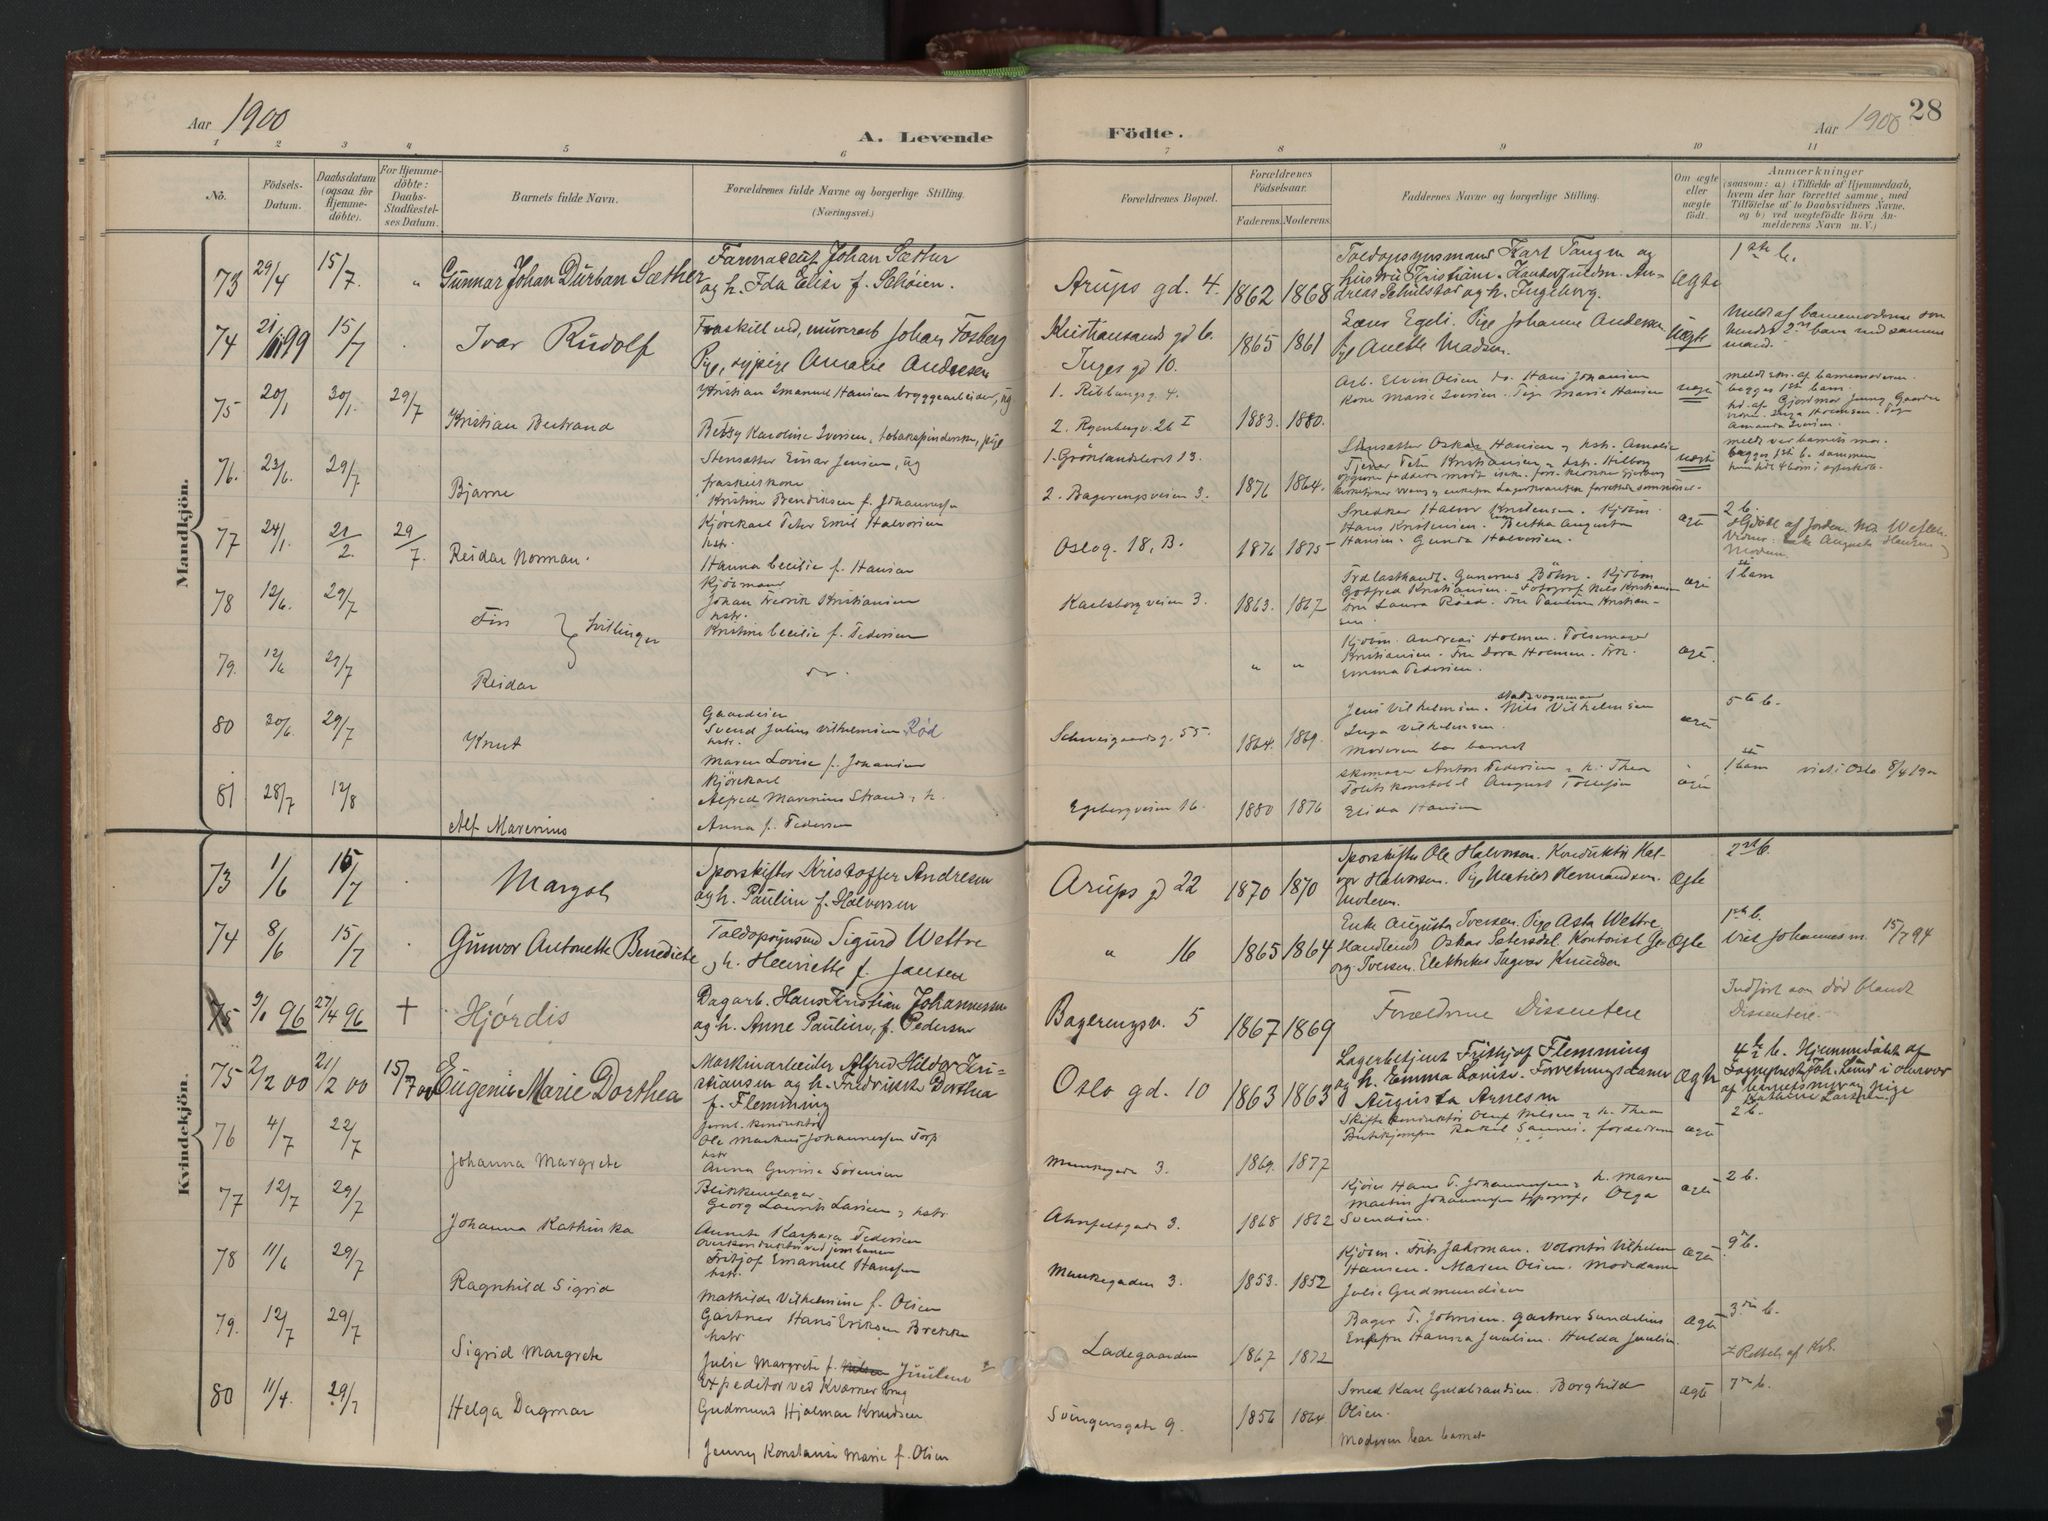 28
Aar 1900
A. Levende
Födte.
Aar 1900
1 2 3 4 5 6 7 8 9 10 11
No.
Födsels-
Datum.
Daabsdatum
(ogsaa for
Hjemme-
döbte).
For Hjemme-
döbte:
Daabs-
Stadfæstel-
ses Datum.
Barnets fulde Navn.
Forældrenes fulde Navne og borgerlige Stilling.
(Næringsvei.)
Forældrenes Bopæl.
Forældrenes
Födselsaar.
Faderens. Moderens.
Faddernes Navne og borgerlige Stilling.
Om ægte
eller
uægte
födt.
Anmærkninger
(saasom: a) i Tilfælde af Hjemmedaab,
hvem der har forrettet samme, med
Tilföielse af to Daabsvidners Navne,
og b) ved uægtefödte Börn An-
melderens Navn m. V.)
Mandkjön.
73 29/4 15/7 " Gunnar Johan Durban Sæther
Farmaceut Johan Sæther
og h. Ida Elise f. Schøien.
Arups gd. 4. 1862 1868
Toldopsynsmand Karl Tangen og
hustru Kristiane.
Ingeborg.
ægte
1ste b.
74 21/11 99 15/7 Ivar Rudolf
Fraskilt Johan Fosberg
Pige, sypige Amalie Andresen
Kristiansands gd 6.
Inges gd 10.
1865 1861
Pige Johanne Andersen
Pige Anette Madsen.
Uægte
Meldt af barnemoderen som
hendes 2net barn med samme
mand.
75 20/1 30/1 29/7 Kristian Bertrand
Kristian Emanuel Hansen bryggearbeider, ug
Betsy Karoline Iversen, tobakspinderske, pige
1. Ribbungs g. 4.
2. Ryenberg v. 26 I
1883. 1880.
Arb. Elvin Olsen do. Hans Johansen
Kone Marie Iversen. Pige Marie Hansen
uægte
begges 1ste barn.
Amanda Iversen.
76. 23/6. 29/7 Bjarne
Stensætter Einar Jensen, ug
fraskilt kone
Kristine Bendiksen f. Johannessen
1. Grønlandsleret 13.
2. Bagerengsveien 3.
1876 1864.
Stensætter Oskar Hansen og hstr. Amalie
uægte
begges 1ste b. sammen
77 24/1. 21/2. 29/7. Reidar Norman.
Kjørekarl Peter Emil Halvorsen
hstr.
Hanna Cecilie f. Hansen
Oslo g. 18, B. 1876 1875
Snedker Halvor Kristensen. Kjøbm.
Hans Kristensen. Bertha Augusta
Hansen. Gunda Halvorsen.
ægte
2 b.
Moderen.
78 12/6. 29/7 Fin } tvillinger
Kjøbmand
Johan Fredrik Kristiansen
hstr.
Kristine Cecilie f. Pedersen
Karlsborgveien 3. 1863. 1867
Trælasthandl. Gunerius Bøhn. Kjøbm.
Gotfred Kristiansen. Fotograf Nils Kristiansen
Fru Laura Røed. Fru Pauline Kristian-
sen.
ægte
1ste barn
79. 12/6 29/7 Reidar
do.
" "
Kjøbm. Andreas Holmen.
Kristiansen. Fru Dora Holmen. Frk.
Emma Pedersen.
ægte.
80 30/6. 29/7 Knut
Gaardeier
Svend Julius Vilhelmsen Rød
hstr.
Maren Lovise f. Johansen
Schweigaardsg. 55. 1864. 1869.
Jens Vilhelmsen. Nils Vilhelmsen
Inga Vilhelmsen.
Moderen bar barnet
ægte
5te b.
81 28/7 12/8 Alf Marenius
Kjørekarl
Alfred Marenius Strand, h.
Anna f. Pedersen
Egebergveien 16. 1880 1876
Skomager Anton Pedersen, h. Thea
Politikonstabel August Tollefsen
Elida Hansen
ægte
1ste barn viet i Oslo 8/4 1900
Kvindekjön.
73 1/6 15/7 Margot
Sporskifter Kristoffer Andresen
og h. Pauline f. Halvorsen
Arups gd 22 1870 1870
Sporskifter Ole Halvorsen. Konduktør Hal-
vor Halvorsen. Pige Matilde Hermandsen.
Moderen.
Ægte
2net b.
74 8/6 15/7 Gunvor Antonette Benedicte
Toldopsynsmd Sigurd Wettre
og h. Henriette f. Jansen
" 16 1865 1864
Enke Augusta Iversen. Pige Asta Wettre
Handlende Oskar Setersdal. Kontorist Ge-
org Iversen. Elektriker Ingvar Knudsen
Ægte
1ste b.
Viet Johannes m. 15/7 94
75 9/1 96 27/4 96 + Hjørdis
Dagarb. Hans Kristian Johannessen
og h. Anne Pauline, f. Pedersen
Bagerengsv. 5 1867 1869
Forældrene Dissentere
Indført som død blandt
Dissentere.
75 2/2 00 21/2 00 15/7 00 Eugenie Marie Dorthea
Maskinarbeider Alfred Hildor Kri-
stiansen og h. Fredrikke Dorthea
f. Flemming
Oslo gd. 10 1863 1863
Lagerbetjent Frithjof Flemming
og h. Emma Lovise. Forretningsdame
Augusta Arnesen
ægte
4de b. Hjemmedøbt af
Sogneprest Joh. Lund i overvær
af barnets mor og pige
Kathrine Larsen
76 4/7 22/7 Johanna Margrete
Jernb. konduktør
Ole Markus Johannessen Torp
hstr
Anna Gurine Sørensen
Munkegaden 3. 1869. 1877
Skiftekonduktør Oluf Nilsen og h. Thea
ægte
2 b.
77 12/7 29/7 Johanna Kathinka
Blikkenslager
Georg Laurits Larsen, hstr.
Annete Kaspara Pedersen
Ahnfeltsgade 3. 1868 1862
Kjører Hans T. Johannessen, h. Maren
Martin Johannessen typograf, Olga
Svendsen.
ægte
2 b.
78 11/6 29/7 Ragnhild Sigrid
Overkonduktør ved jernbanen
Fritjof Emanuel Hanssen
hstr.
Mathilde Vilhelmine f. Olsen
Munkegaden 3. 1853. 1852
Kjøbm. Frits Jahrman. Volontør Vilhelm
Hansen. Maren Olsen. Modedame
Julie Gudmundsen
ægte
9. b.
79. 12/7 29/7 Sigrid Margrete
Gartner Hans Eriksen Brekke
hstr
Julie Margrete f. Juulsen
Ladegaarden 1867 1872
Bager T. Johnsen. Gartner Sundelius
Enkefru Hanna Juulsen. Hulda Juulsen
ægte
3die b.
Rettels. af Kd.
80 11/4. 29/7 Helga Dagmar
Expeditør ved Kværner brug
Gudmund Hjalmar Knudsen
Jenny Konstanse Marie f. Olsen
Svingensgate 9. 1856 1864
Smed Karl Guldbrandsen. Borghild
Olsen.
Moderen bar barnet
ægte
7de b.